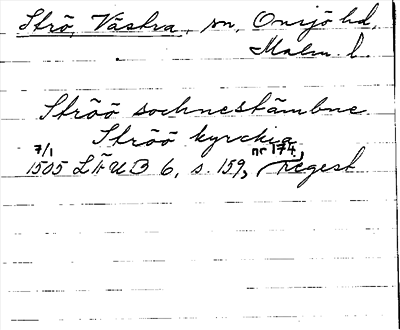 Strö, Västra, sn, Onsjö hd,
Malm. l.
Ströö sochnestämbne
Ströö kyrckia,
7/1 nr 174,
1505 LÄUB 6, s. 159, Regest